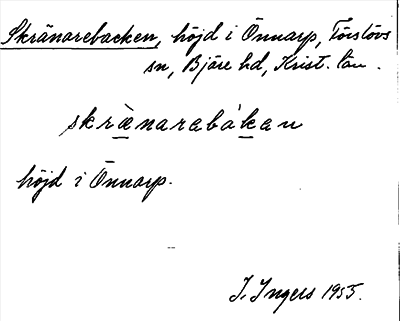 Skränarebacken, höjd i Önnarp, Törslövs
sn, Bjäre hd, Krist. län.
skrὰnarabákan
höjd i Önnarp.
I. Ingers 1955.